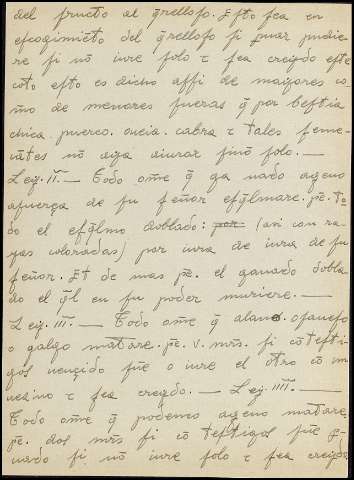 del fructo al q̃relloso. Esto sea en
escogimiẽto del q̃relloso si puar pudie-
re si nõ iure solo τ sea creydo este
coto esto es dicho assi de mayores co-
mo de menores fueras q̃ por bestia
chica puerco. oueia. cabra τ tales seme-
iãtes nõ aya aiurar sinõ solo. —
Ley. II. — Todo om̃e q̃ ga nado ageno
afuerça de su señor esq̃lmare. p̃e. to-
do el esq̃lmo doblado: por (asi con ra-
yas coloradas) por iura de iura de su
señor. Et de mas p̃e. el ganado dobla-
do el q̃l en su poder muriere. —
Ley. III. — Todo om̃e q̃ alano. o
o galgo matare. p̃e. v. mr̃s. si cõ testi-
gos uençido fũe o iure el otro cõ un
uezino τ sea creydo. — Ley. IIII. —
Todo om̃e q̃ podenco ageno matare.
p̃e. dos mr̃s si cõ testigos fũe
uado si nõ iure solo τ sea creydo